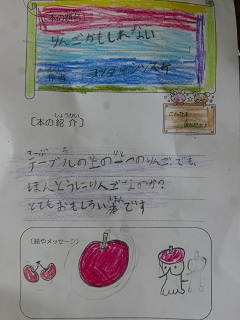 〔本の題名〕
りんごかもしれない
作者 ヨシタケシンスケ
〔本の紹介〕
しょうかい
テーブルの上の一つのりんご。でも、
ほんとうにりんごなのか?
とてもおもしろい本です
〔絵やメッセージ〕